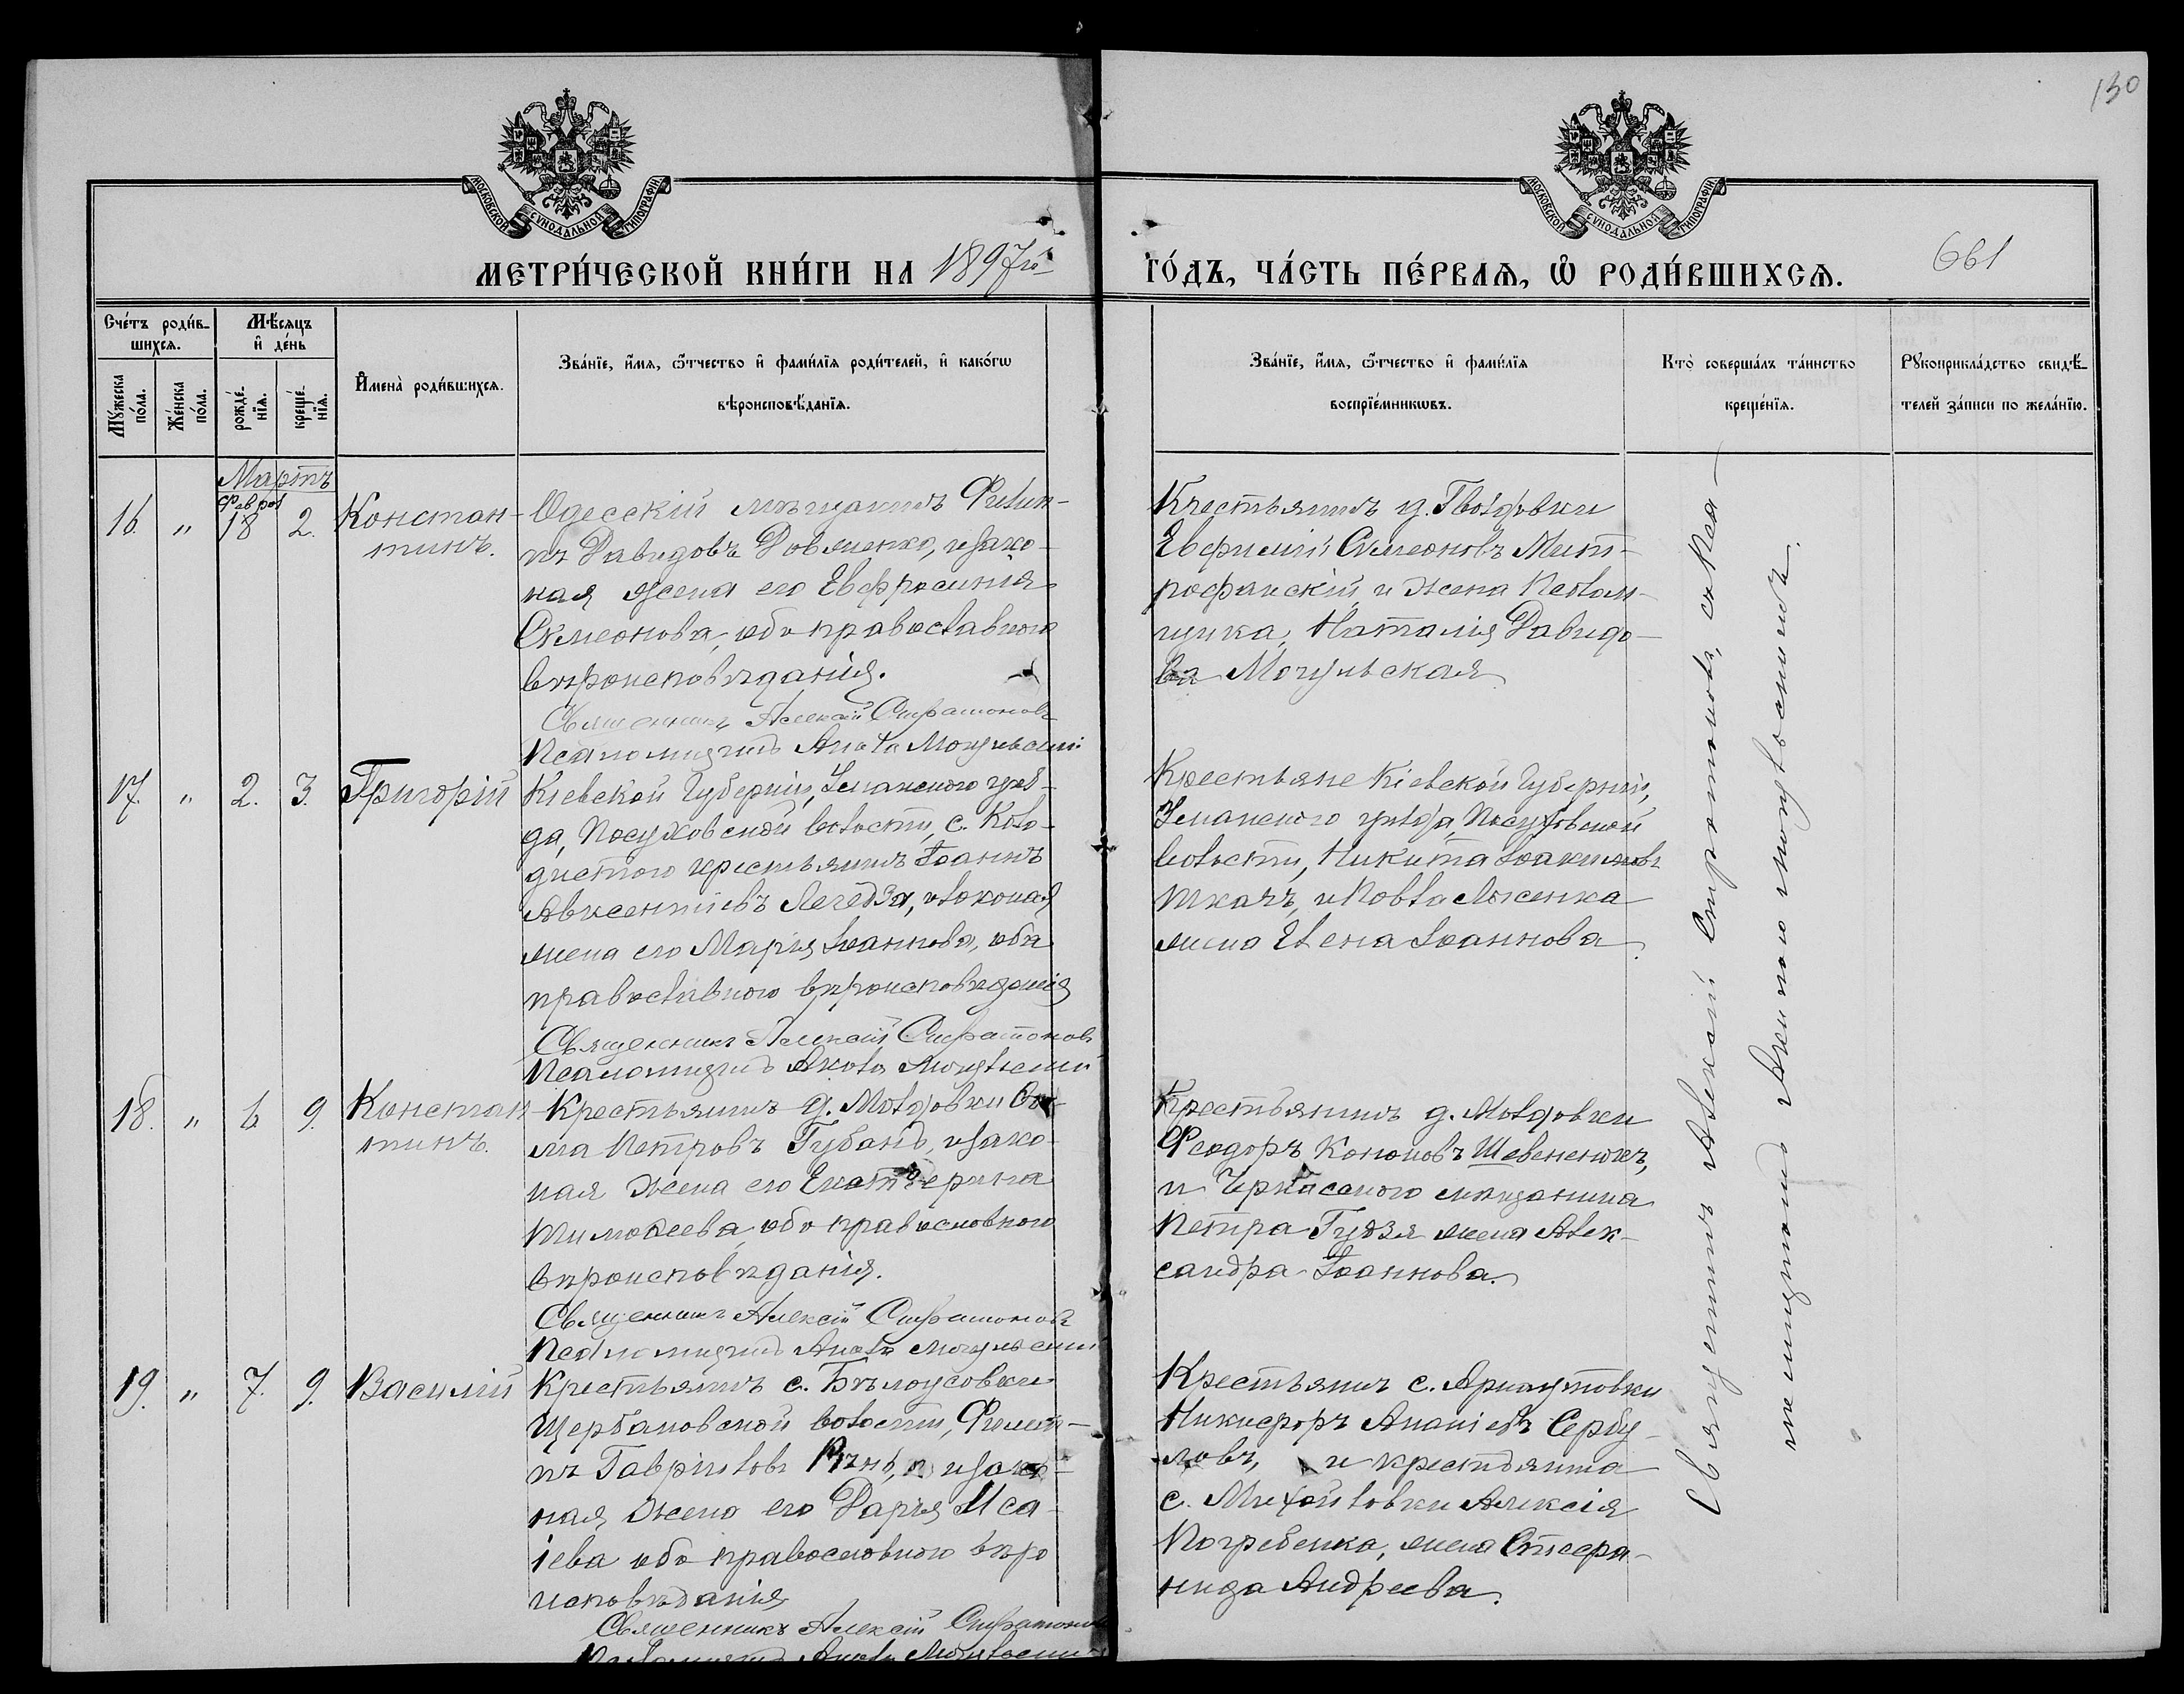 130
МОСКОВСКОЙ СѴНОДАЛЬНОЙ ТИПОГРАФІИ.
МОСКОВСКОЙ СѴНОДАЛЬНОЙ ТИПОГРАФІИ.
МЕТРИ́ЧЕСКОЙ КНИ́ГИ НА 1897й
ГО́ДЪ, ЧА́СТЬ ПЕ́РВАЯ, Ѡ҆ РОДИ́ВШИХСЯ.
661
Сче́тъ роди́в-
шихся.
Мѣ́сяцъ
и҆ де́нь
Мꙋ́жеска
по́ла.
Же́нска
по́ла.
рожде́-
нїя.
креще́-
нїя.
И҆мена̀ роди́вшихся.
Зва́нїе, и҆́мя, ѻ҆́тчество и҆ фами́лїя роди́телей, и҆ како́гѡ
вѣроисповѣ́данїя.
Зва́нїе, и҆́мя, ѻ҆́тчество и҆ фами́лїя
воспрїе́мникѡвъ.
Кто̀ соверша́лъ та́инство
креще́нїя.
Рꙋкоприкла́дство свидѣ́-
телей за́писи по жела́нїю.
Мартъ
Феврал
16. " 18 2. Констан-
тинъ.
Одесскій мѣщанинъ Филип-
пъ Давидовъ Довженко, и зако-
ная жена его Евфросинія
Симеонова, оба православного
вѣроисповѣданія.
Священникъ Алексій Стратоновъ
Псаломщикъ Яковъ Могульскій
Крестьянинъ д.
Евфимій Симеоновъ Мит-
рофанскій и жена Псалом-
щика, Наталія Давидо-
ва Могульская
17. " 2. 3. Григорій
Кіевской Губерніи, Уманского уѣз-
да, Посуховской волости, с. Коло-
дистого крестьянинъ Іоаннъ
Авксентіевъ Легедза, и законая
жена его Марія Іоаннова, оба
православного вѣроисповѣданія
Священникъ Алексій Стратоновъ
Псаломщикъ Яковъ Могульскій
Крестьяне Кіевской Губерніи,
Уманского уѣзда, Посуховской
волости, Никита Іоакимовъ
Ткачъ, и Павла Лысенка
жена Елена Іоаннова.
18. " 6 9. Констан-
тинъ.
Крестьянинъ д. Молдовки Ѳо-
ма Петровъ Губанъ, и зако-
ная жена его Екатерина
Тимоѳеева, оба православного
вѣроисповѣданія.
Священникъ Алексій Стратоновъ
Псаломщикъ Яковъ Могульскій
Крестьянинъ д. Молдовки
Феодоръ Кононовъ Шевененюкъ,
и Черкаского мѣщанина
Петра Гудзя жена Алек-
сандра Іоаннова.
19. " 7. 9. Василій
Крестьянинъ с. Бѣлоусовки
Щербановской волости, Филип-
пъ Гавріиловъ и зако-
ная жена его Дарія Иса-
іева оба православного вѣро
исповѣданія
Священникъ Алексій Стратоновъ
Псаломщикъ Яковъ Могульскій
Крестьянинъ с. Арнаутовки
Никифоръ Ананіевъ Сербу-
ловъ, и крестьянина
с. Михайловки Алексія
Погребенка, жена
нида Андреева.
Священникъ Алексій Стратоновъ, съ Пса-
ломщикомъ Яковомъ Могульскимъ.